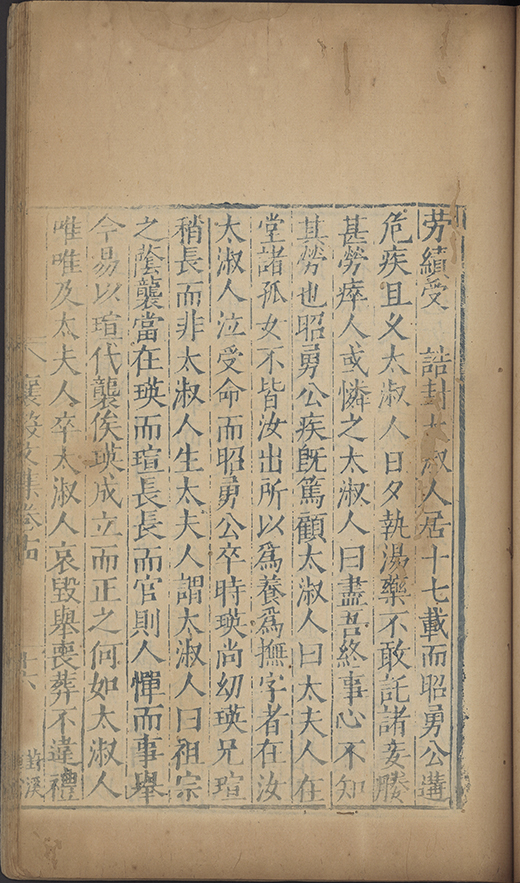 劳績受　誥封太淑人居十七載而昭勇公遘
危疾且乂太淑人日夕執湯藥不敢託諸妾媵
甚勞瘁人或憐之太淑人曰盡吾終事心不知
其勞也昭勇公疾旣篤顧太淑人曰太夫人在
堂諸孤女不皆汝出所以爲養爲撫字者在汝
太淑人泣受命而昭勇公卒時瑛尚幼瑛兄瑄
稍長而非太淑人生太夫人謂太淑人曰祖宗
之蔭襲當在瑛而瑄長長而官則人憚而事舉
今易以瑄代襲俟瑛成立而正之何如太淑人
唯唯及太夫人卒太淑人哀毀舉喪葬不違禮
襄毅文集卷